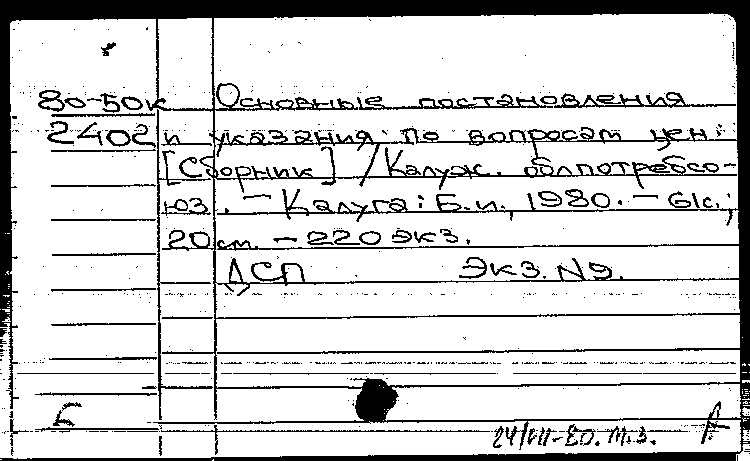 80-50к Основные постановления
2402 и указания по вопросам цен:
[Сборник] / Калуж. облпотребсо-
юз. — Калуга: Б.и., 1980. — 61с.;
20 см. — 220 экз.
ДСП Экз. №9.
Б
24/VII-80. М.З. А